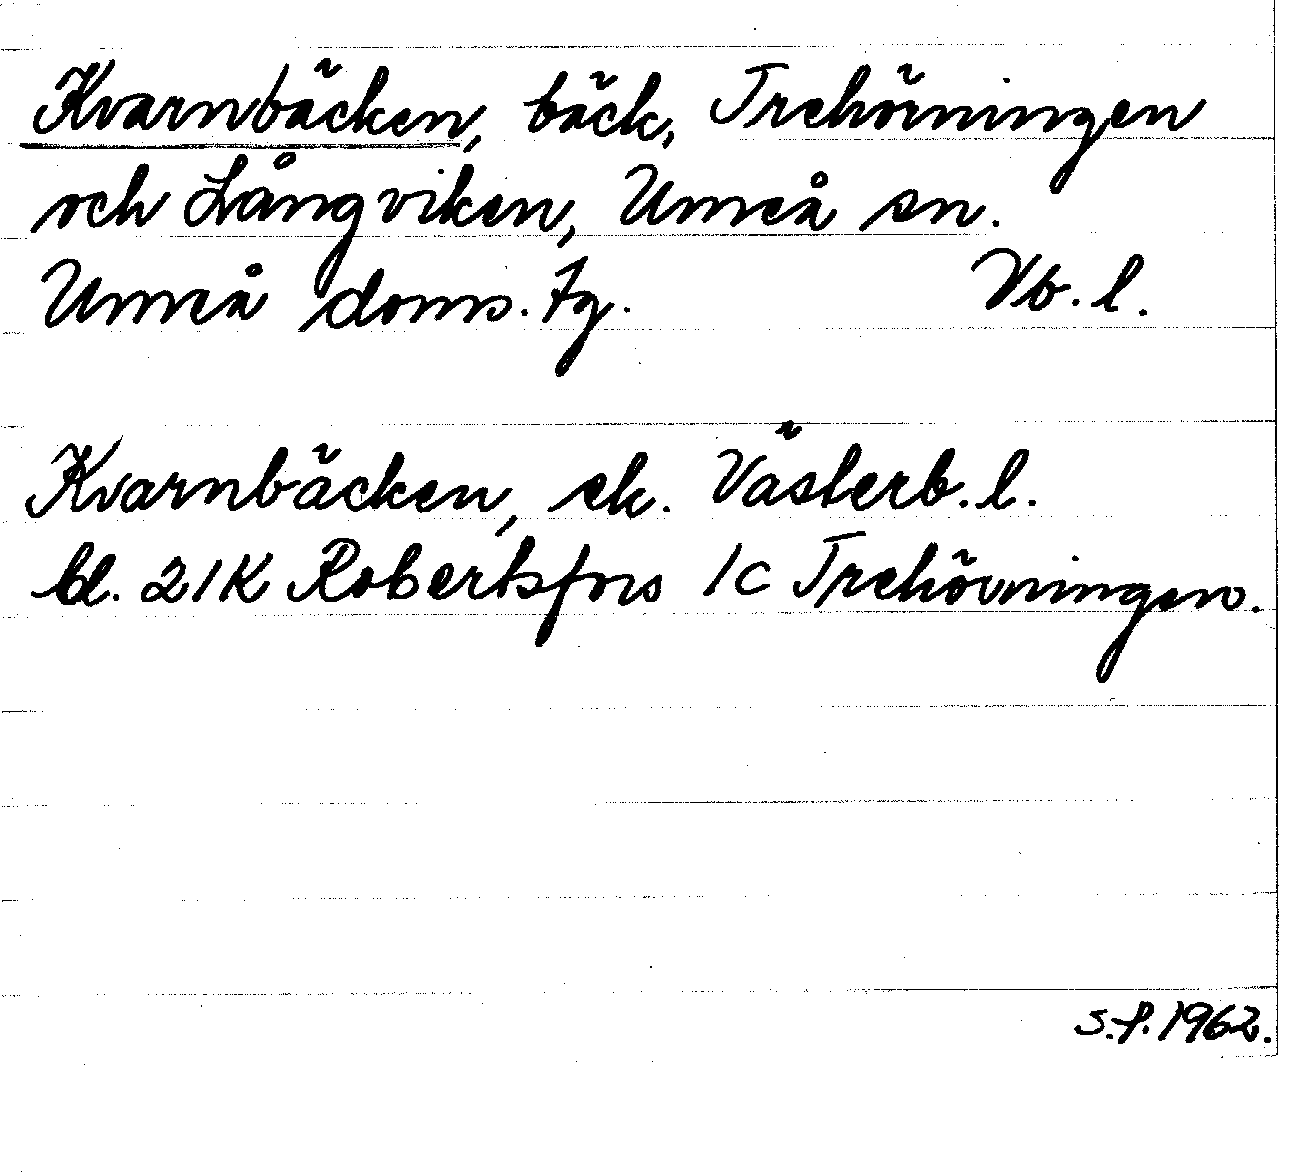 Kvarnbäcken, bäck, Trehörningen
och Långviken, Umeå sn.
Umeå doms. tg. Vb. l.
Kvarnbäcken, ek. Västerb. l.
bl. 21K Robertsfors 1c Trehörningen.
S.f. 1962.